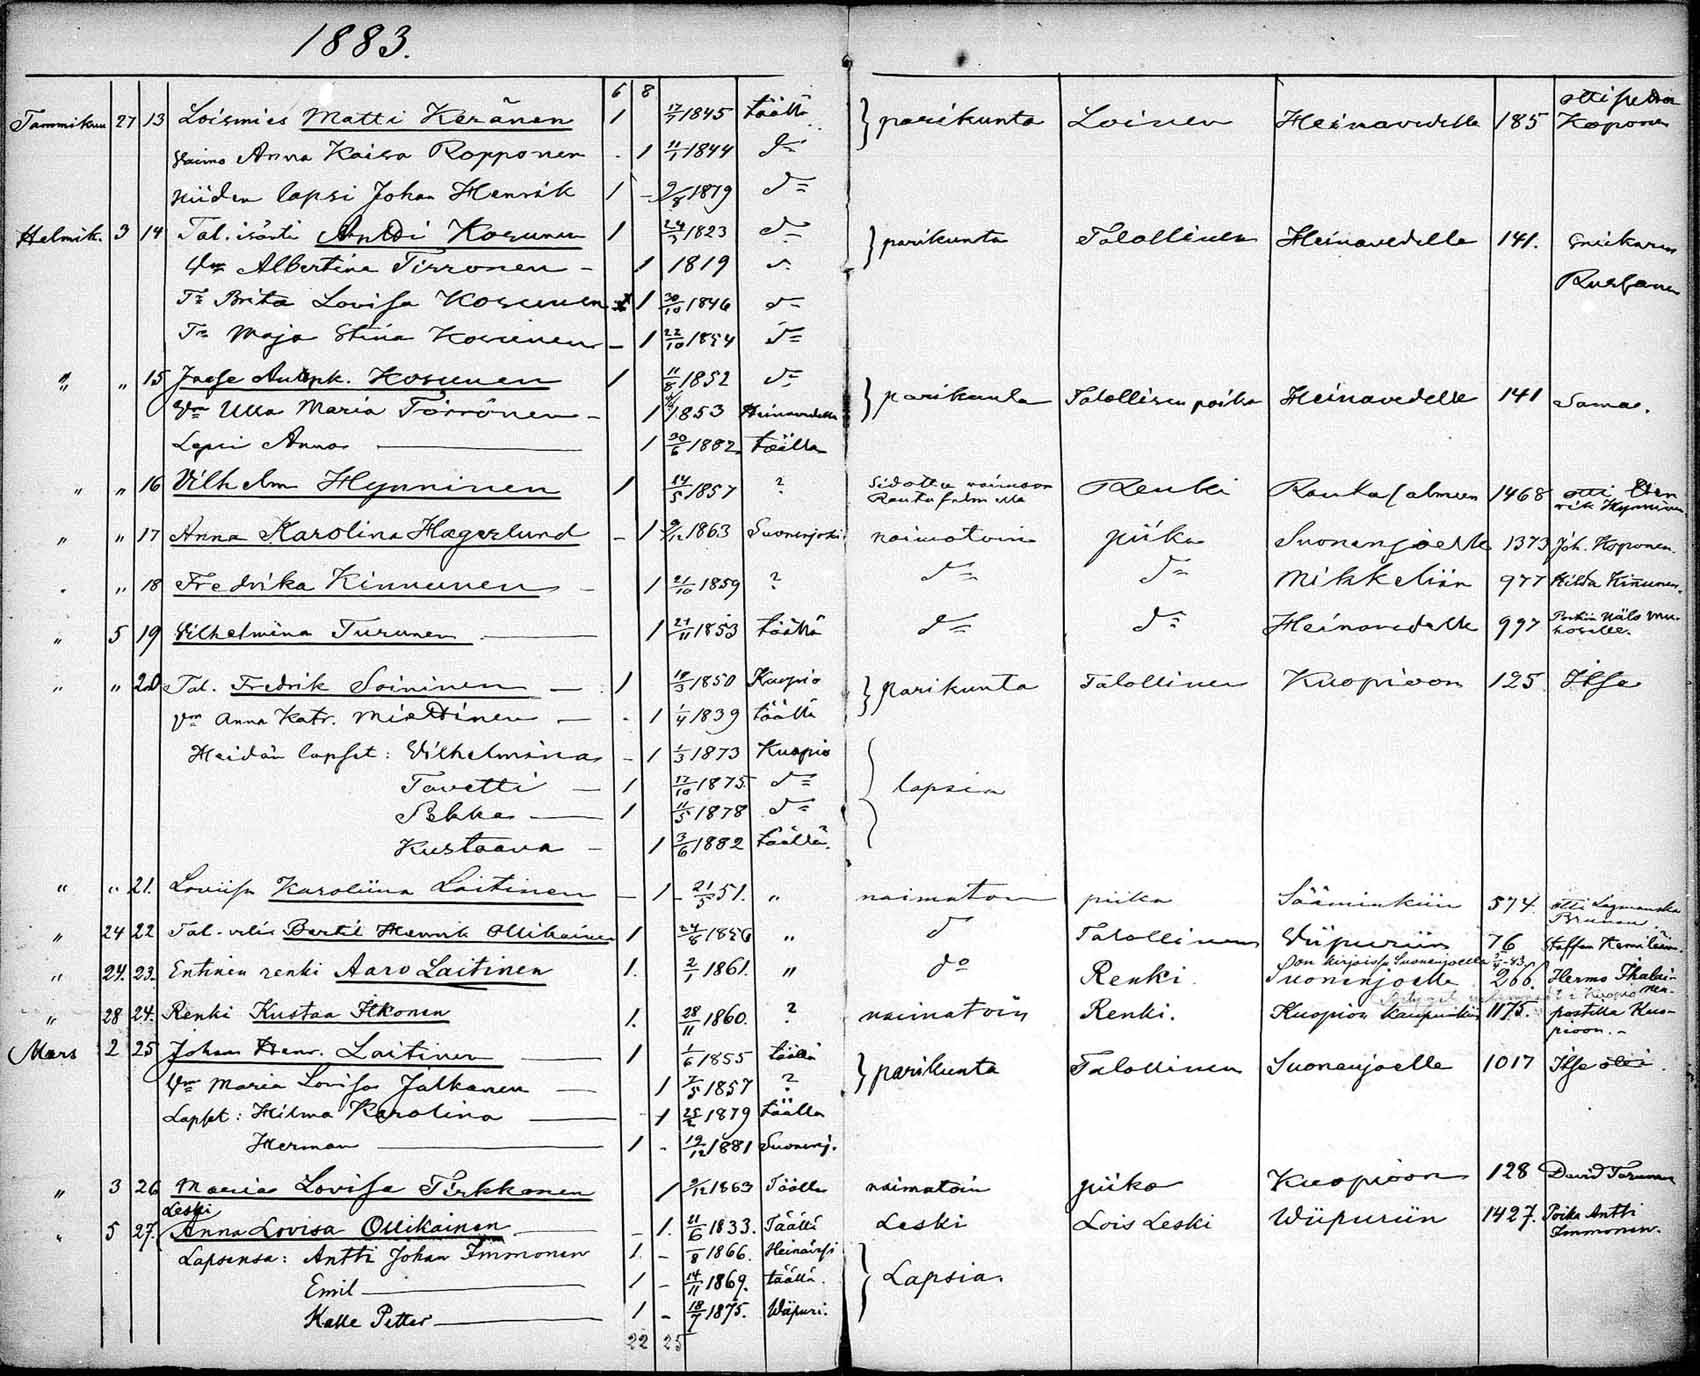 1883.
6 8
Tammikuu 27 13 Loismies Matti Keränen 1 17/7 1845 täällä } parikunta Loinen Heinävedelle 185 otti Koponen
Vaimo Anna Kaisa Ropponen - 1 11/1 1844 d:o
niiden lapsi Johan Henrik 1 - 9/8 1879 d:o
Helmik. 3 14 Tal. isäntä Antti Kosunen 1 24/3 1823 d:o } parikunta Talollinen Heinavedelle 141.
Vm Albertina Tirronen - 1 1819 d:o
Tr Brita Lovisa Kosunen 1 30/10 1846 d:o
Tr Maja Stina Kosunen - 1 22/10 1854 d:o
" " 15 Kosunen 1 11/8 1852 d:o } parikunta Talollisen poika Heinavedelle 141 Samae.
Vm Ulla Maria Törrönen - 1 1853 Heinavedellä
Lapsi Anna - 1 30/6 1882 täällä
" " 16 Vilhelm Hynninen 1 14/5 1857 ? Sidottu vaimoon Rantasalmella Renki Rantasalmeen 1468 otti Hynninen
" " 17 Anna Karolina Hagerlund - 1 9/12 1863 Suonenjoki naimatoin piika Suonenjoelle 1373 Joh. Koponen
" " 18 Fredrika Kinnunen - 1 21/10 1859 ? d:o d:o Mikkeliin 977 Hilda Kinnunen.
" 5 19 Vilhelmina Turunen - 1 27/11 1853 täällä d:o d:o Heinavedelle 997
" " 20 Tal. Fredrik Soininen - 1 10/3 1850 Kuopio } parikunta Talollinen Kuopioon 125 Itse
Vm Anna Katr. Miettinen - - 1 1/4 1839 täällä
Heidän lapset: Vilhelmina - 1 1/3 1873 Kuopio
Tavetti - 1 17/10 1875 d:o } lapsia
Pekka - 1 11/5 1878 d:o
Kustaava - 1 3/6 1882 täällä.
" " 21. Loviisa Karoliina Laitinen - 1 - 21/5 51. " naimaton piika Sääminkiin 574
" 24 22 Bertil Henrik Ollikainen 1 24/8 1856 " d:o Talollinen Viipuriin 76
" 24. 23. Entinen renki Aaro Laitinen 1. 2/1 1861. " d:o Renki. Suonenjoelle 266.
on kirjoissa Suonenjoella
" 28 24. Renki Kustaa Ikonen 1. 28/11 1860. ? naimatoin Renki. Kuopion kaupunkiin 1175. postilla Kuopioon.-
Mars 2 25 Johan Henr. Laitinen - 1 1/6 1855 täällä } parikunta Talollinen Suonenjoelle 1017 Itse
Vm Maria Lovisa Jalkanen - 1 7/5 1857 ?
Lapset: Hilma Karolina - 1 1879 täällä
Herman - 1 - 19/12 1881 Suonenj.
" 3 26 Maria Lovisa Tirkkonen 1 9/12 1863 Täällä naimatoin piika Kuopioon 128 David
Leski
" 5 27. Anna Lovisa Ollikainen - 1. 21/6 1833. Täällä Leski Lois Leski Wiipuriin 1427. Poika Antti Immonen.
Lapsensa: Antti Johan Immonen 1. - /8 1866. Heinävesi
Emil - 1 - 14/11 1869. täällä. } Lapsia.
Kalle Petter - 1 - 18/7 1875. Wiipuri.
22 25